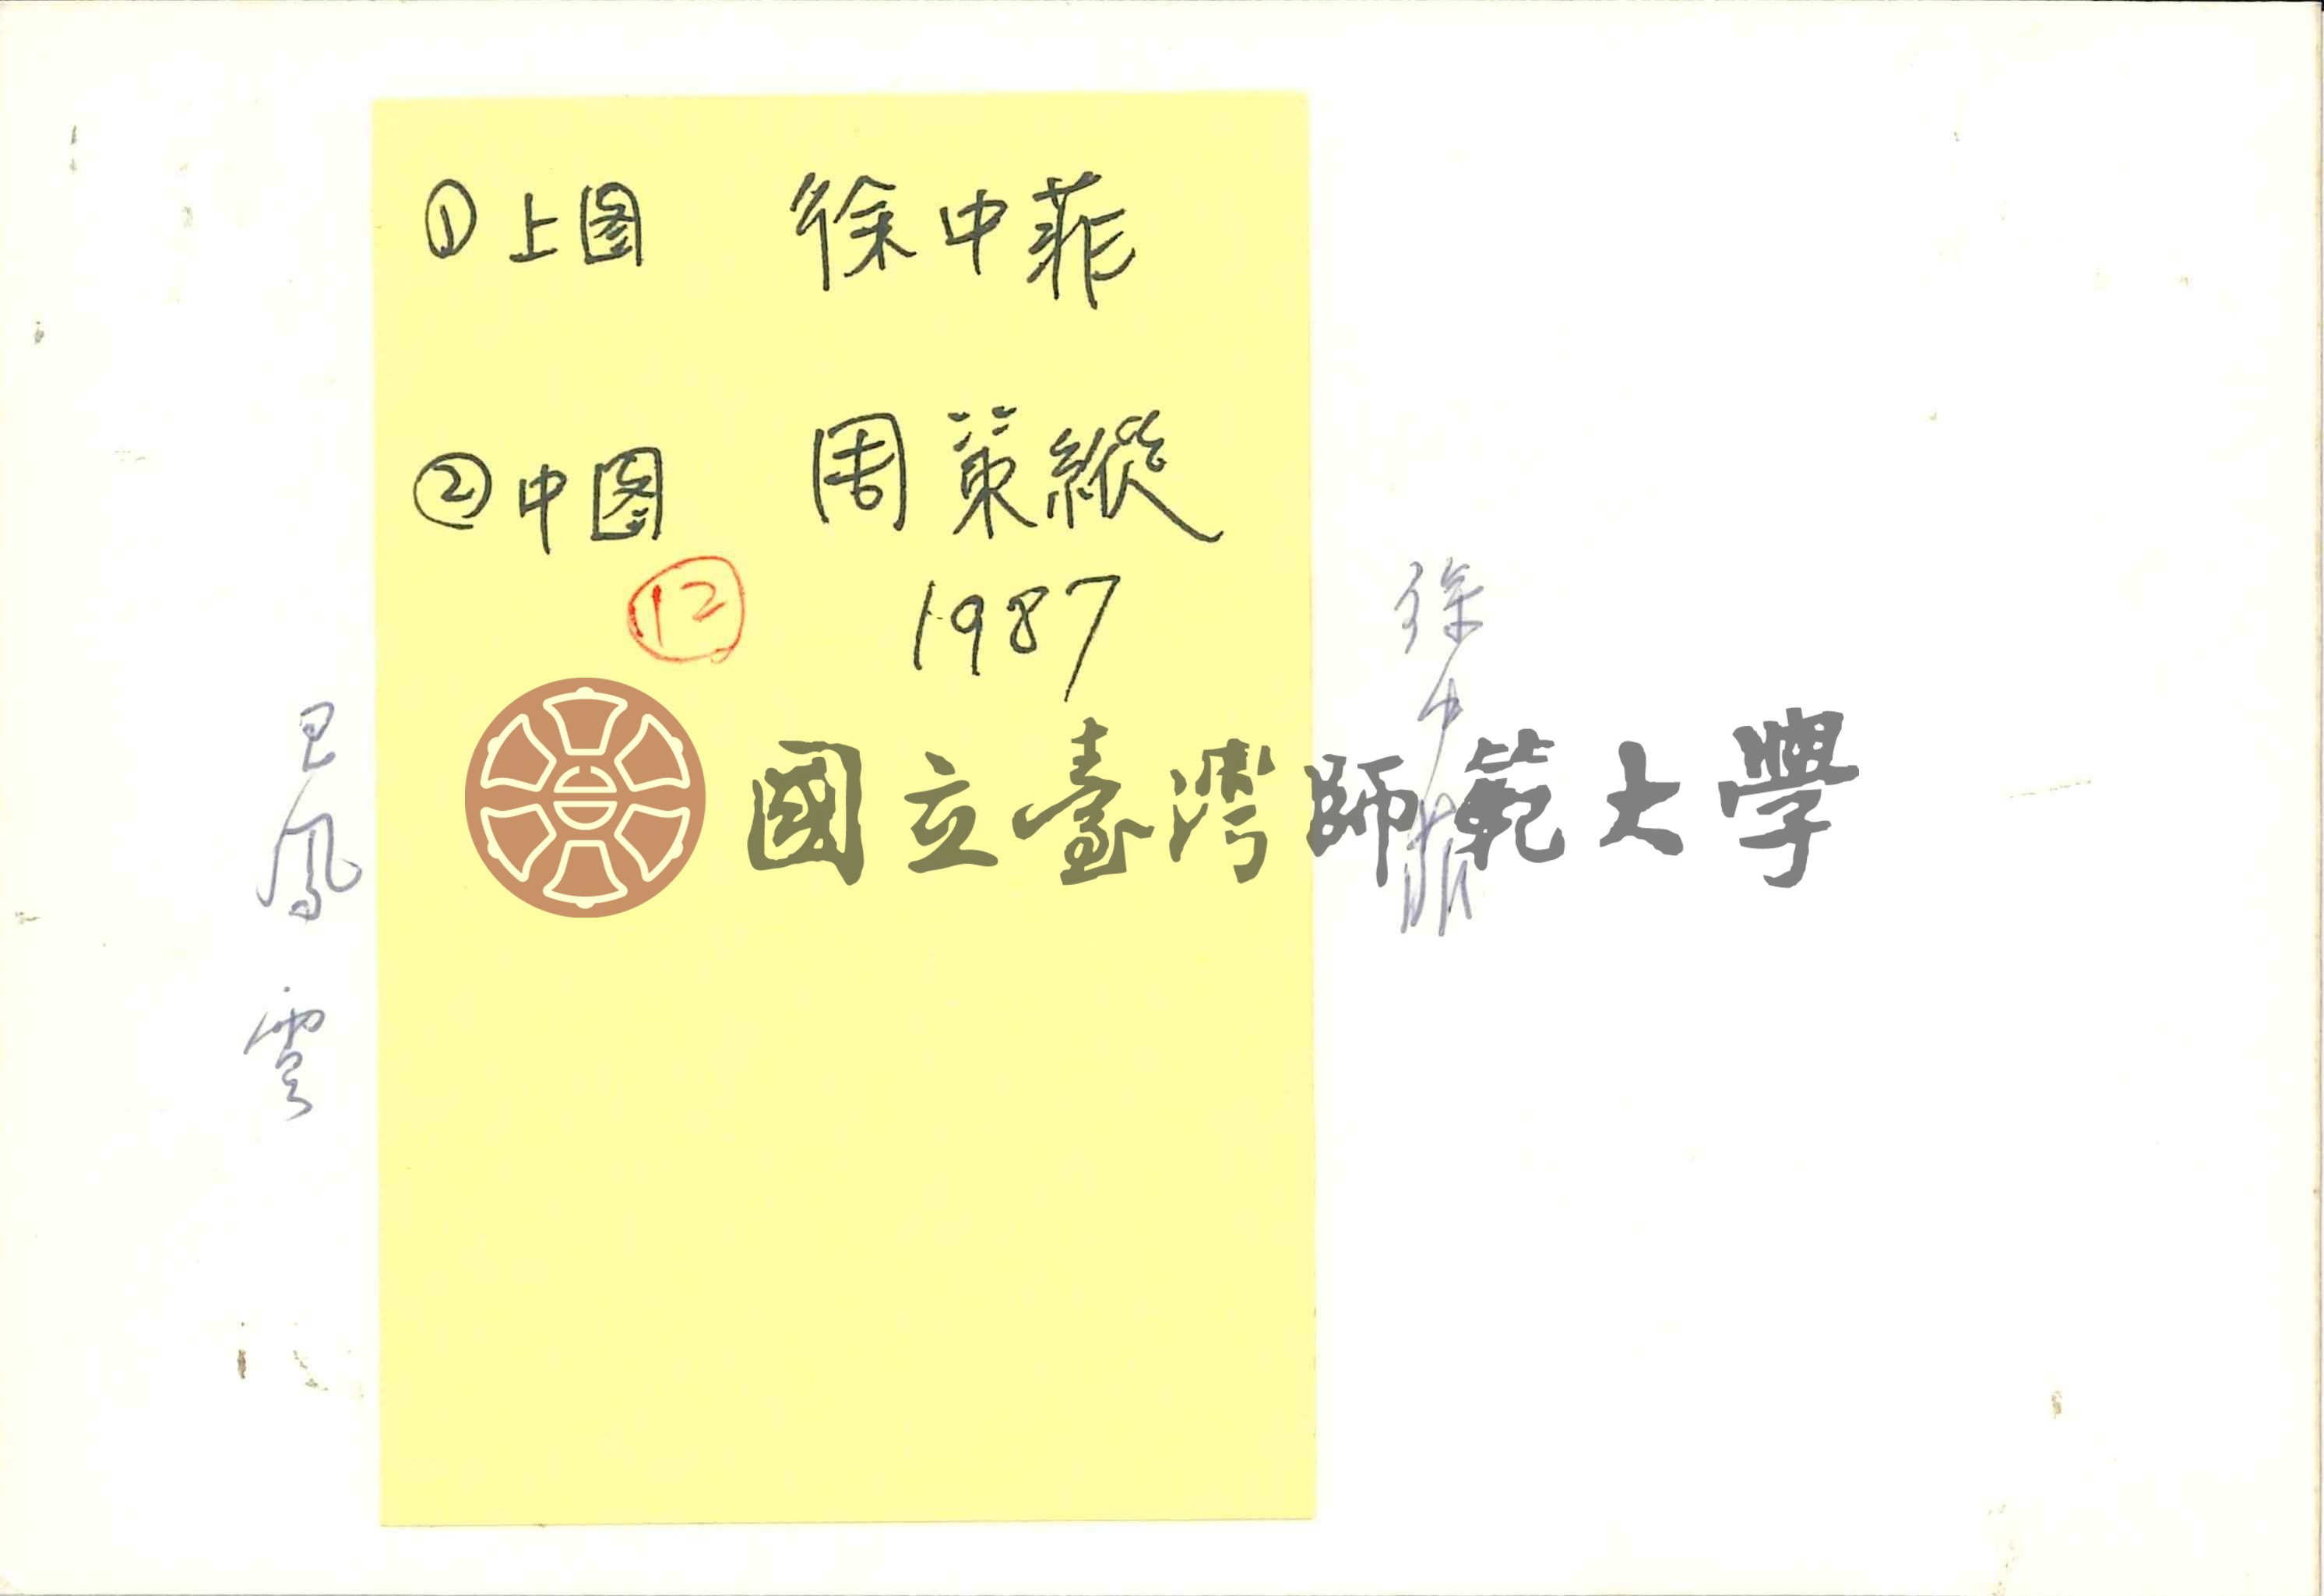 ①上图 徐中菲
②中图 周策縱
⑫ 1987
徐中菲
國立臺灣師範大學
呂鳳雲